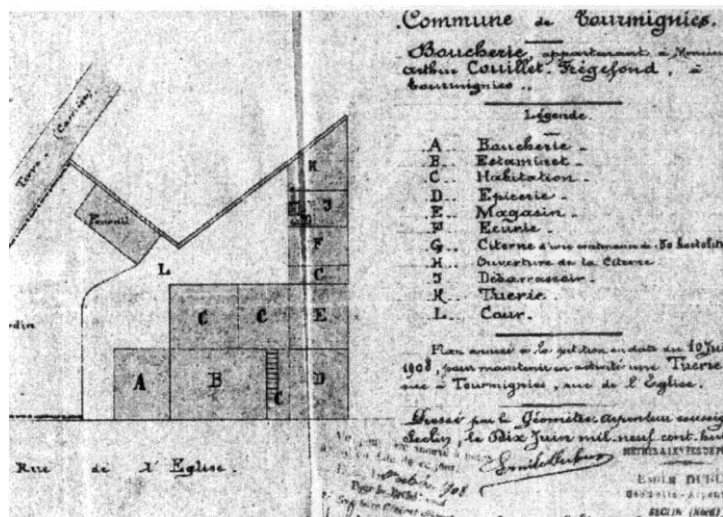 Commune de Tourmignies.
Boucherie, appartenant à Monsieur
Arthur Couillet-Frégefond, à
Tourmignies..
Légende.
A.. Boucherie.
B.. Estaminet.
C.. Habitation.
D.. Epicerie.
E.. Magasin.
F.. Ecurie.
G.. Citerne d'une contenance de 50 hectolit
H.. Ouverture de la Citerne.
J.. Débarrassoir.
K.. Tuerie.
L.. Cour.
Plan annexé à la pétition en date du 10 Jui
1908, pour maintenir en activité une Tuerie
sise à Tourmignies, rue de l'Eglise.
Dressé par le Géomètre-arpenteur soussig
Seclin, le Dix Juin mil neuf cent huit
Terre (Carrière)
Fournil
K
J
F
C
L
C C E
A B C D
din
Rue de l'Eglise.
1908
METRES & LEVÉES DE P
EMILE DU
Géomètre-Arpent
SECLIN (Nord)